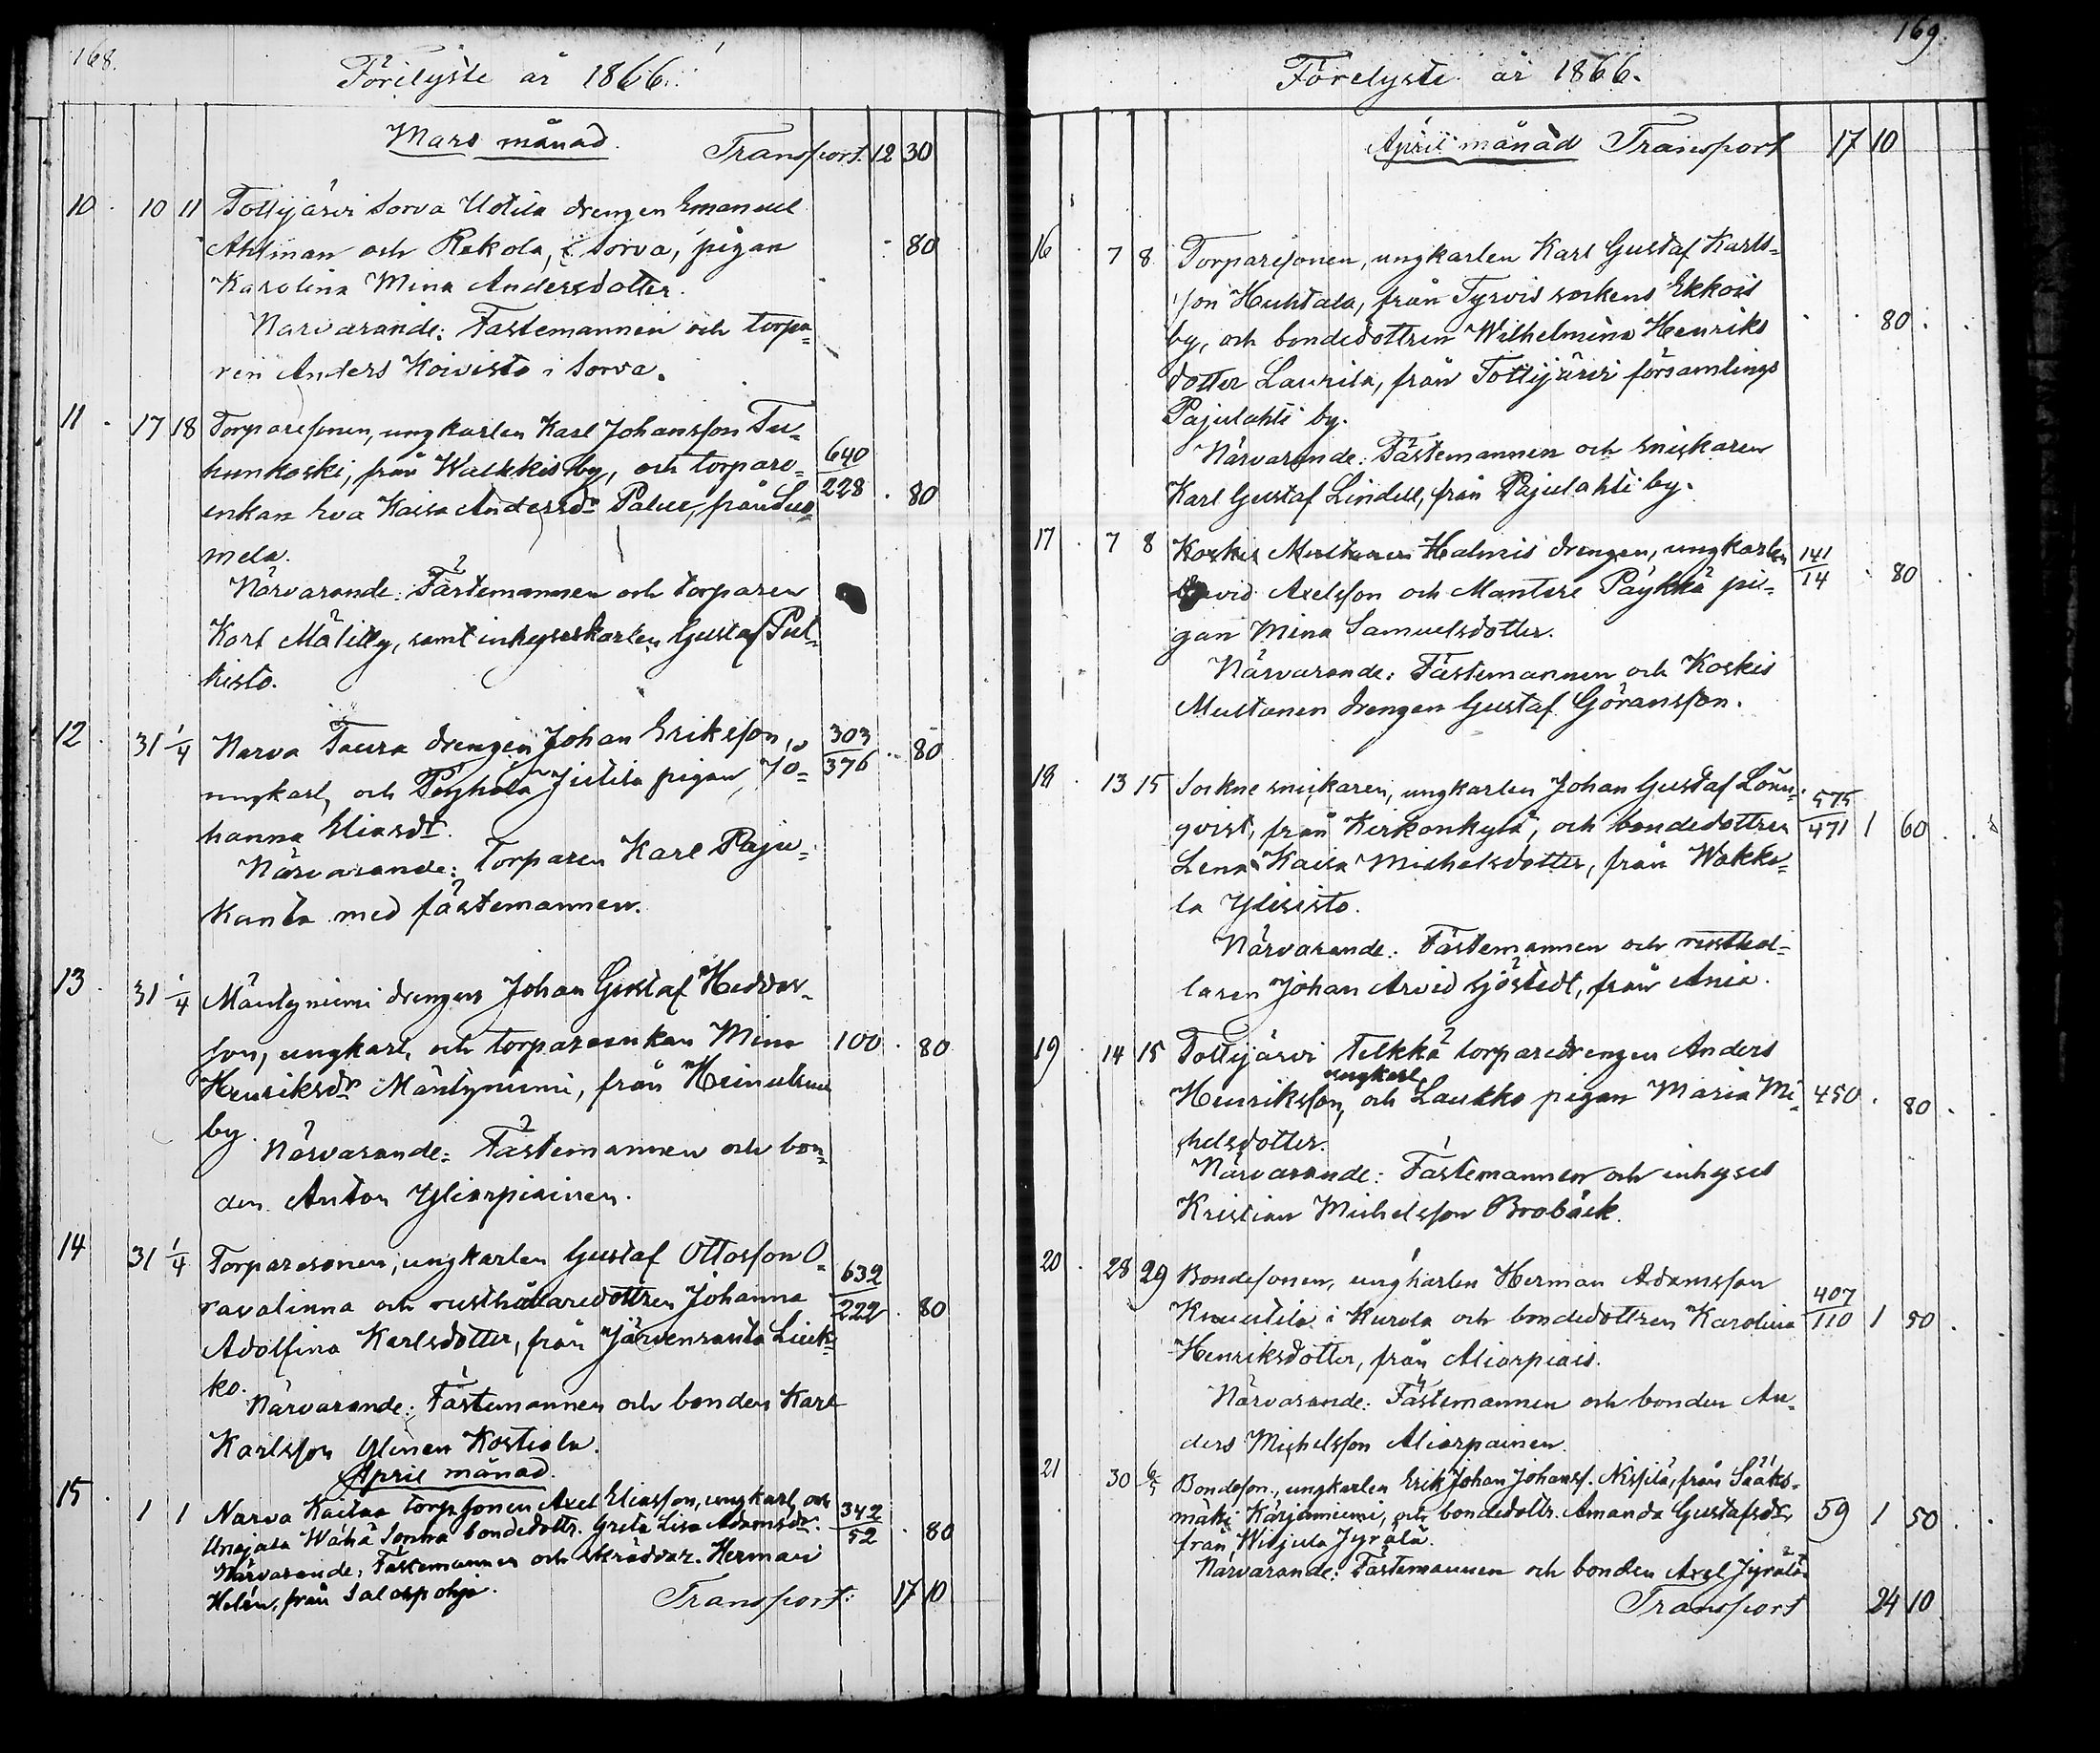 168.
Förelyste år 1866.
Mars månad. Transport. 12 30
10. 10 11 Tottijärvi Sorva Uotila drengen Emanuel
Ahlman och Rekola, i Sorva, pigan 80
Karolina Mina Andersdotter.
Närvarande: Fästemannen och torpa-
ren Anders Koivisto i Sorva.
11. 17 18 Torparesonen, ungkarlen Karl Johansson Tu-
hunkoski, från Walkkis by, och torpare- 640/228 . 80
enkan Eva Kaisa Andersdr Palue, från Suo-
mela.
Närvarande: Fästemannen och torparen
Karl Mälilly, samt inhyseskarlen Gustaf Pul-
kisto.
12. 31 1/4 Narva Taura drengen Johan Eriksson, 303/376 .. 80
ungkarl, och Pöyhölä Jutila pigan, Jo-
hanna Eliasdr.
Närvarande: Torparen Karl Paju-
kanta med fästemannen.
13. 31 1/4 Mäntyniemi drengen Johan Gustaf Heddes-
son, ungkarl, och torpareenkan Mina 100 . 80
Henriksdr Mäntyniemi, från Heinulsuu
by.
Närvarande: Fästemannen och bon-
den Anton Yliarpiainen.
14 31 1/4 Torparesonen, ungkarlen Gustaf Ottosson O-
ravalinna och rusthållaredottren Johanna 632/222 . 80
Adolfina Karlsdotter, från Järvenranta Liuk-
ko.
Närvarande: Fästemannen och bonden Karl
Karlsson Ylinen Kostiala.
April månad.
15. 1 1 Narva Kaitaa torp.sonen Axel Eliasson, ungkarl, och 342/52 . 80
Unajala Wähä Sonna bondedottr. Greta Lisa Adamsdr.
Närvarande: Fästemannen och skräddar. Herman
Helén, från Salospohja.
Transport: 17 10
169.
Förelyste år 1866.
April månad Transport 17 10
16. 7 8 Torparesonen, ungkarlen Karl Gustaf Karls-
son Huhtala, från Tyrvis sockens Ekkois 80.
by, och bondedottren Wilhelmina Henriks
dotter Laurila, från Tottijärvi församlings
Pajulahti by.
Närvarande: Fästemannen och snickaren
Karl Gustaf Lindell, från Pajulahti by.
17. 7 8 Koskis Mustanen Halmis drengen, ungkarlen 141/14 . 80
David Axelsson och Mantere Päykkä pi-
gan Mina Samuelsdotter.
Närvarande: Fästemannen och Koskis
Mustanen drengen Gustaf Göransson.
18. 13 15 Sockne snickaren, ungkarlen Johan Gustaf Lönn- 575/471 1 60
qvist, från Kirkonkylä, och bondedottren
Lena Kaisa Michelsdotter, från Wakko-
la Ylisisto.
Närvarande: Fästemannen och rusthål-
laren Johan Arvid Sjöstedt, från Ania.
19. 14 15 Tottijärvi Telkkä torparedrengen Anders
Henriksson, ungkarl, och Laukko pigan Maria Mi- 450 . 80
chelsdotter.
Närvarande: Fästemannen och inhyses
Kristian Michelsson Brobäck.
20. 28 29 Bondesonen, ungkarlen Herman Adamsson
Knuutila i Kurola och bondedottren Karolina 407/110 1 50
Henriksdotter, från Aliarpiais.
Närvarande: Fästemannen och bonden An-
ders Michelsson Aliarpainen.
21. 30 6/5 Bondeson., ungkarlen Erik Johan Johanss. Nissilä, från Sääks-
mäki Karjaniemi, och bondedottr. Amanda Gustafsdr, 59 1 50
från Wisjula Jyrälä.
Närvarande: Fästemannen och bonden Axel Jyrälä.
Transport 24 10